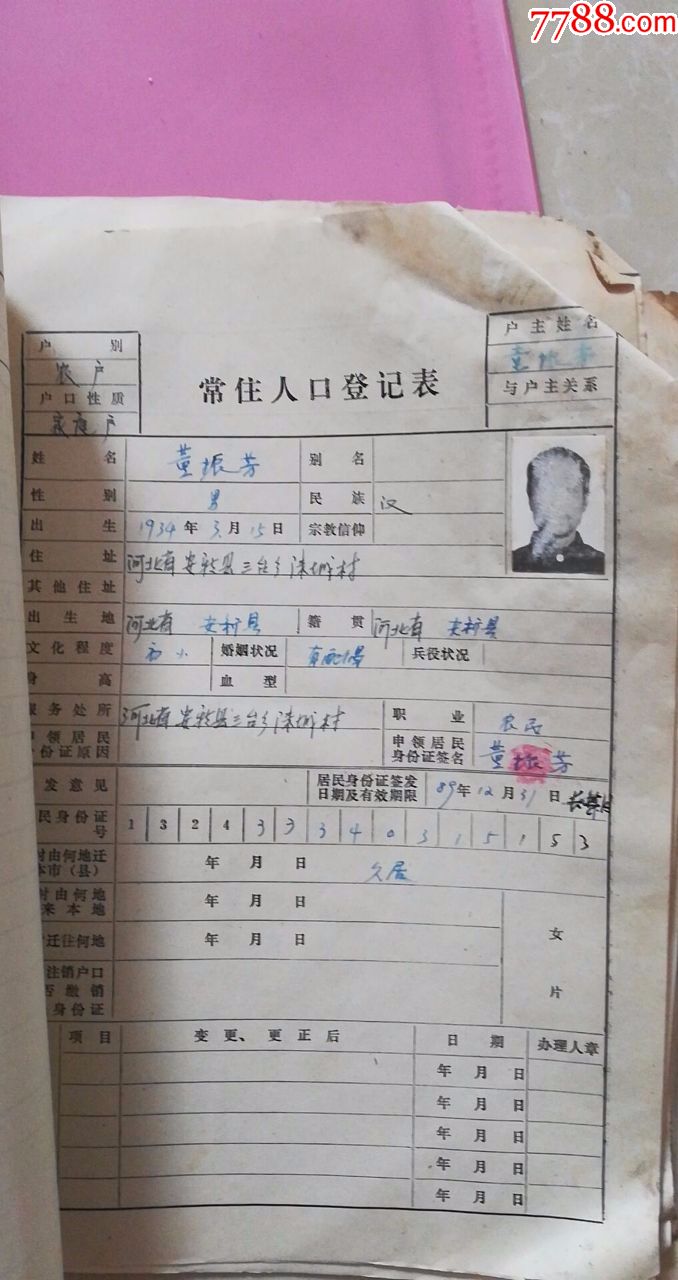 7788.com
户别
农户
户口性质
家庭户
常住人口登记表
户主姓名
与户主关系
姓名 董振芳 别名
性别 男 民族 汉
出生 1934年3月15日 宗教信仰
住址 河北省安新县三台乡涞城村
其他住址
出生地 河北省 安新县 籍贯 河北省 安新县
文化程度 初小 婚姻状况 有配偶 兵役状况
身高 血型
服务处所 河北省安新县三台乡涞城村 职业 农民
申领居民
身份证原因
申领居民
身份证签名 董振芳
发意见 居民身份证签发
日期及有效期限 89年12月31日 长期
民身份证
号 1 3 2 4 3 3 3 4 0 3 1 5 1 5 3
时由何地迁
本市(县) 年 月 日 久居
时由何地
来本地 年 月 日
迁往何地 年 月 日
女
片
注销户口
否缴销
身份证
项目 变更、更正后 日期 办理人章
年 月 日
年 月 日
年 月 日
年 月 日
年 月 日